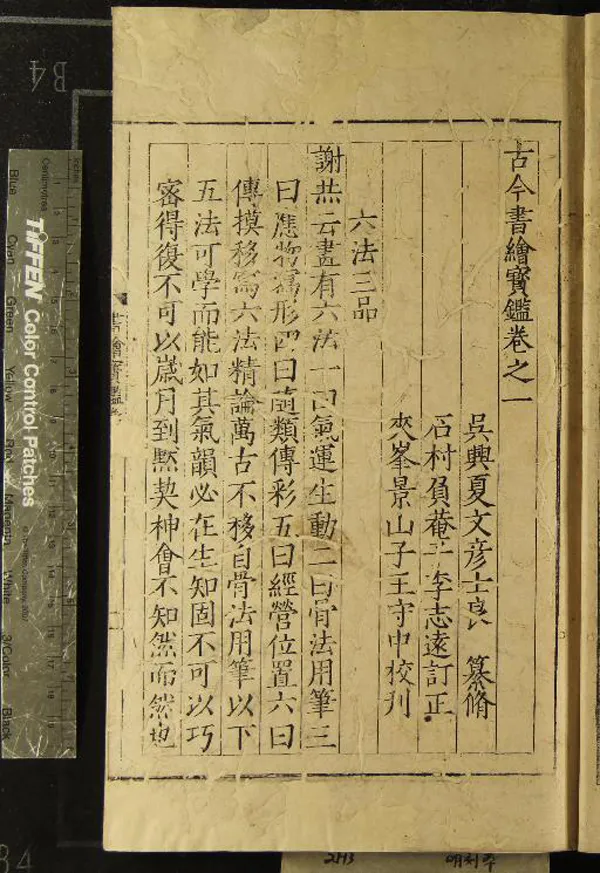 古今書繪寳鑑卷之一
吳興夏文彦士良 纂脩
石村負菴子李志遠訂正
夾峯景山子王守中校刋
六法三品
謝赫云畫有六法一曰氣運生動二曰骨法用筆三
曰應物寫形四曰隨類傳彩五曰經營位置六曰
傳摸移寫六法精論萬古不移自骨法用筆以下
五法可學而能如其氣韻必在生知固不可以巧
宻得復不可以歲月到黙契神會不知然而然也
書繪寳鑑
B4
Centimetres
TIFFEN Color Control Patches
Blue
Cyan
Green
Yellow
Red
Magenta
White
3/Color
Black